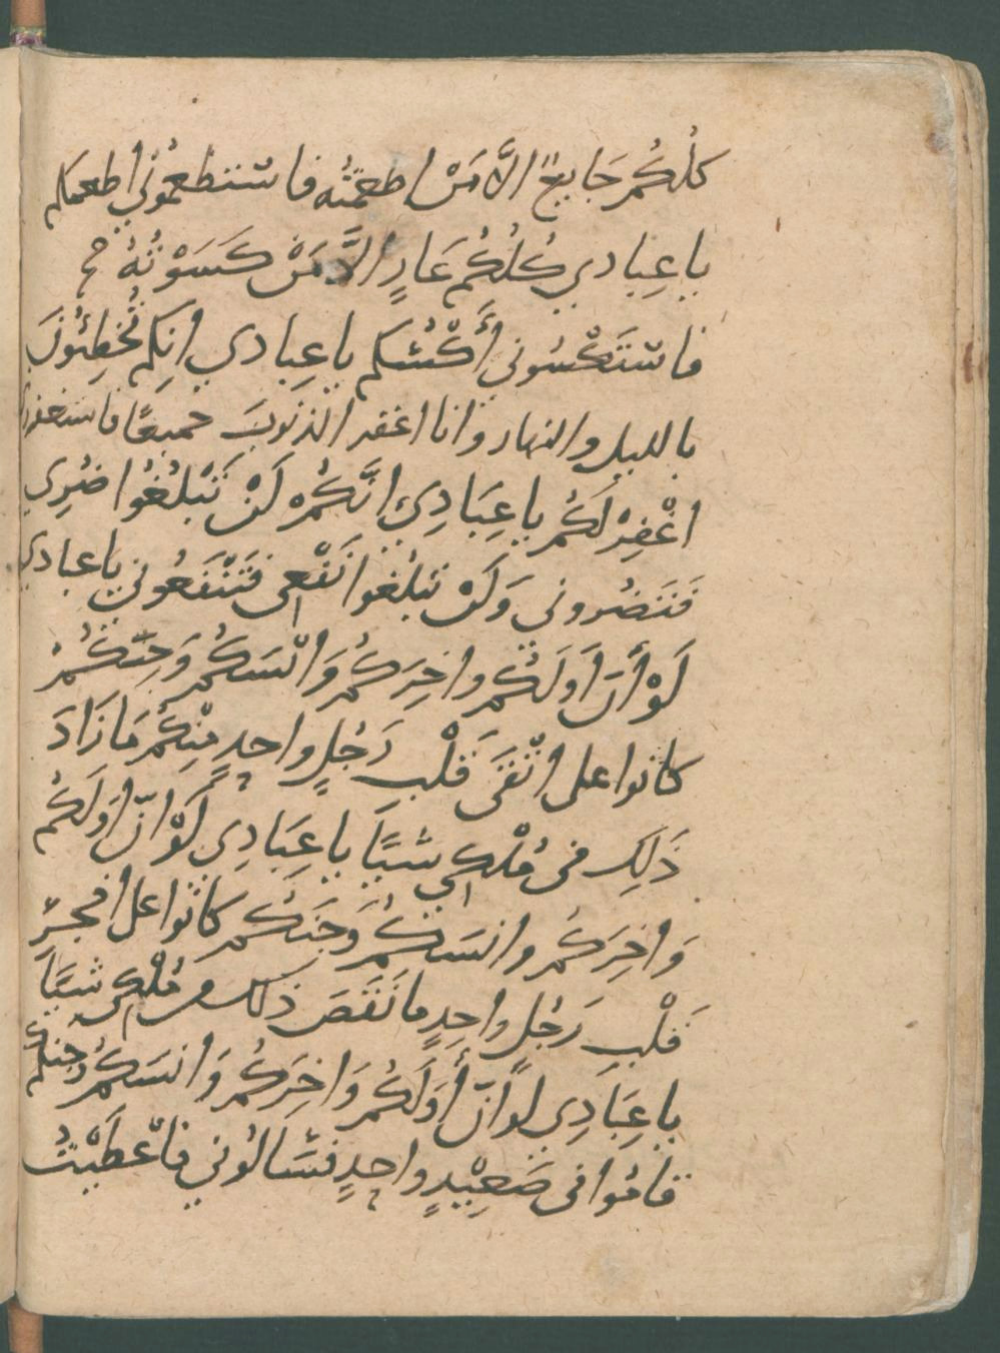 كُلُكُم جَايعٌ الاَّ مَنْ اطعمْتُه فاسْتطعمُوني اطعمكم
ياعِبادي كُلُكُم عَارٍ الاَّ مَنْ كَسَوْتُهُ
فاسْتَكْسُوني أَكْسُكم ياعِبادي انكِم تُخطِئُونَ
بالليل والنهار وانا اغفر الذنوبَ جميعًا فاستغفروني
اغْفِرْ لكُم ياعِبَادِي انَّكُمْ لَنْ تَبْلُغُوا ضُرِي
فَتَضُروني وَلَنْ تبلُغوا نَفْعِي فَتَنْفَعُوني ياعبادي
لَوْ أَنَ اَولَكُم واخِرَكُم وَانْسَكُم وَجِنَّكُمْ
كانوا على اتْقَى قَلْبِ رَجُلٍ واحدٍ مِنْكِم مَا زَادَ
ذَلِكَ في مُلْكِي شيًا ياعِبَادِي لَوْ انّ اَوَلَكُم
وَاخِرَكُم وانسَكُم وَجَنَكُم كانوا على افْجرِ
قَلْبِ رَجُلٍ واحِدٍ ما نَقَصَ ذَلك من مُلْكِي شيًا
ياعِبَادِي لو انّ أَوَلَكُم وَاخِرَكُم وَانسَكُم وجنكم
قامُوا في صَعِيْدٍ واحدٍ فسَالُوني فاعْطَيْتُ